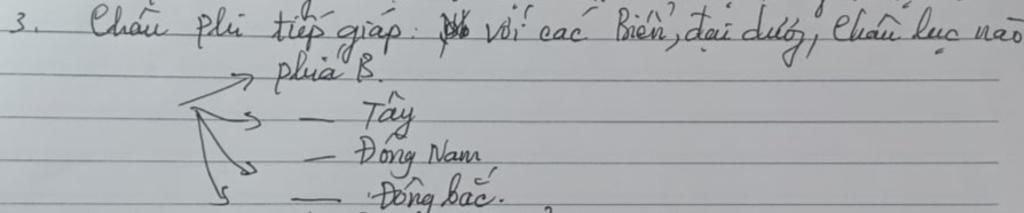 3. Châu phi tiếp giáp: với các Biển, đại dương, Châu lục nào
phía B.
— Tây
— Đông Nam
— Đông bắc.